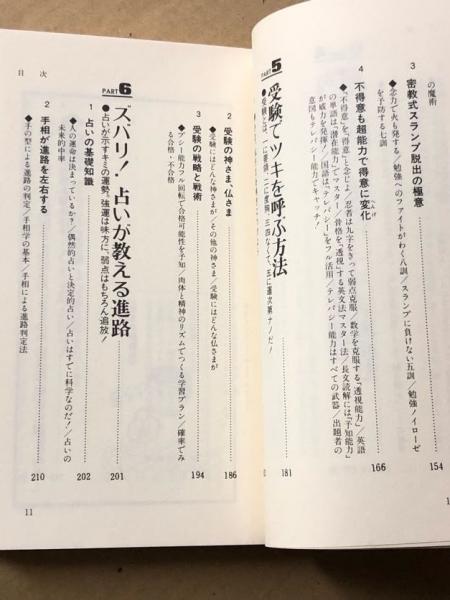 の魔術
3 密教式スランプ脱出の極意 154
◆念力で火も発する/勉強へのファイトがわく八訓/スランプに負けない五訓/勉強ノイローゼ
を予防する七訓
4 不得意も超能力で得意に変化 166
へんげ
◆「不得意」を「得意」と念じよ/忍者は九字をきって弱点克服/数学を克服する「透視能力」/英語
の単語は「潜在能力」でマスター/骨格を「透視」する英文法マスター法/長文読解には「予知能力」
が威力を発揮/国語は「テレパシー」をフル活用/テレパシー能力はすべての武器/出題者の
意図もテレパシー能力でキャッチ!
PART5 受験でツキを呼ぶ方法 181
●受験とは、一に要領、二に度胸、三四なくて、五に運次第ナノだ!
目次
2 受験の神さま・仏さま 186
◆受験にはどんな神さまが/その他の神さま/受験にはどんな仏さまが
3 受験の戦略と戦術 194
◆プシー能力フル回転で合格可能性を予知/肉体と精神のリズムでつくる学習プラン/確率でみ
る合格・不合格
PART6 ズバリ!占いが教える進路 201
●占いが示すキミの運勢。強運は味方に、弱点はもちろん追放!
1 占いの基礎知識 202
◆人の運命は決まっているか?/偶然的占いと決定的占い/占いはすでに科学なのだ!/占いの
未来的中率
2 手相が進路を左右する 210
◆手の型による進路の判定/手相学の基本/手相による進路判定法
11